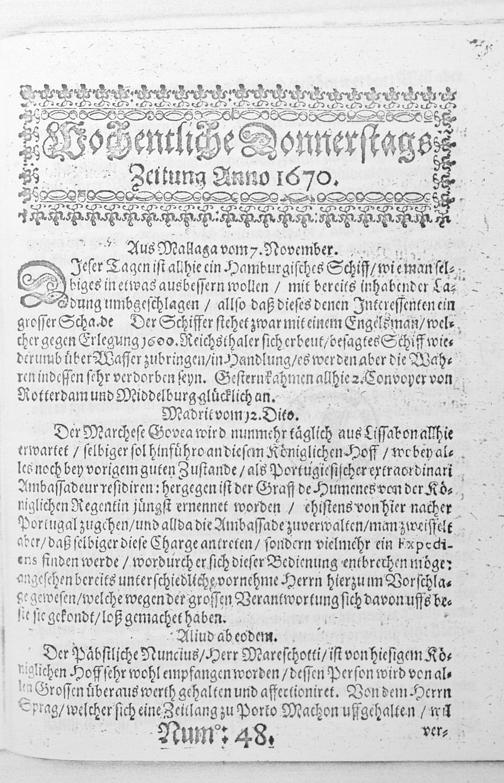 Wochentliche Donnerstags
Zeitung Anno 1670.
Aus Mallaga vom 7. November.
DJeser Tagen ist allhie ein Hamburgisches Schiff/ wie man sel-
biges in etwas ausbessern wollen / mit bereits inhabender La-
dung umbgeschlagen / allso daß dieses denen Interessenten ein
grosser Scha.de Der Schiffer stehet zwar mit einem Engelsman/ wel-
cher gegen Erlegung 1600. Reichsthaler sich erbeut/ besagtes Schiff wie-
derumb über Wasser zubringen/ in Handlung/ es werden aber die Wah-
ren indessen sehr verdorben seyn. Gestern kahmen allhie 2. Convoyer von
Rotterdam und Middelburg glücklich an.
Madrit vom 12. Dito.
Der Marchese Govea wird nunmehr täglich aus Lissabon allhie
erwartet / selbiger sol hinführo an diesem Königlichen Hoff / wobey al-
les noch bey vorigem guten Zustande / als Portugiesischer extraordinari
Ambassadeur residiren: hergegen ist der Graff de Humenes von der Kö-
niglichen Regentin jüngst ernennet worden / ehistens von hier nacher
Portugal zugehen/ und allda die Ambassade zuverwalten/ man zweisselt
aber/ daß selbiger diese Charge antreten / sondern vielmehr ein Expedi-
ens finden werde / wordurch er sich dieser Bedienung entbrechen möge;
angesehen bereits unterschiedliche vornehme Herrn hierzu im Vorschla-
ge gewesen/ welche wegen der grossen Verantwortung sich davon uffs be-
ste sie gekondt/ loß gemachet haben.
Aliud ab eodem.
Der Päbstliche Nuncius/ Herr Mareschotti/ ist von hiesigem Kö-
niglichen Hoff sehr wohl empfangen worden / dessen Person wird von al-
len Grossen überaus werth gehalten und affectioniret. Von dem Herrn
Sprag/ welcher sich eine Zeitlang zu Porto Machon uffgehalten / wil
Num°: 48. ver-